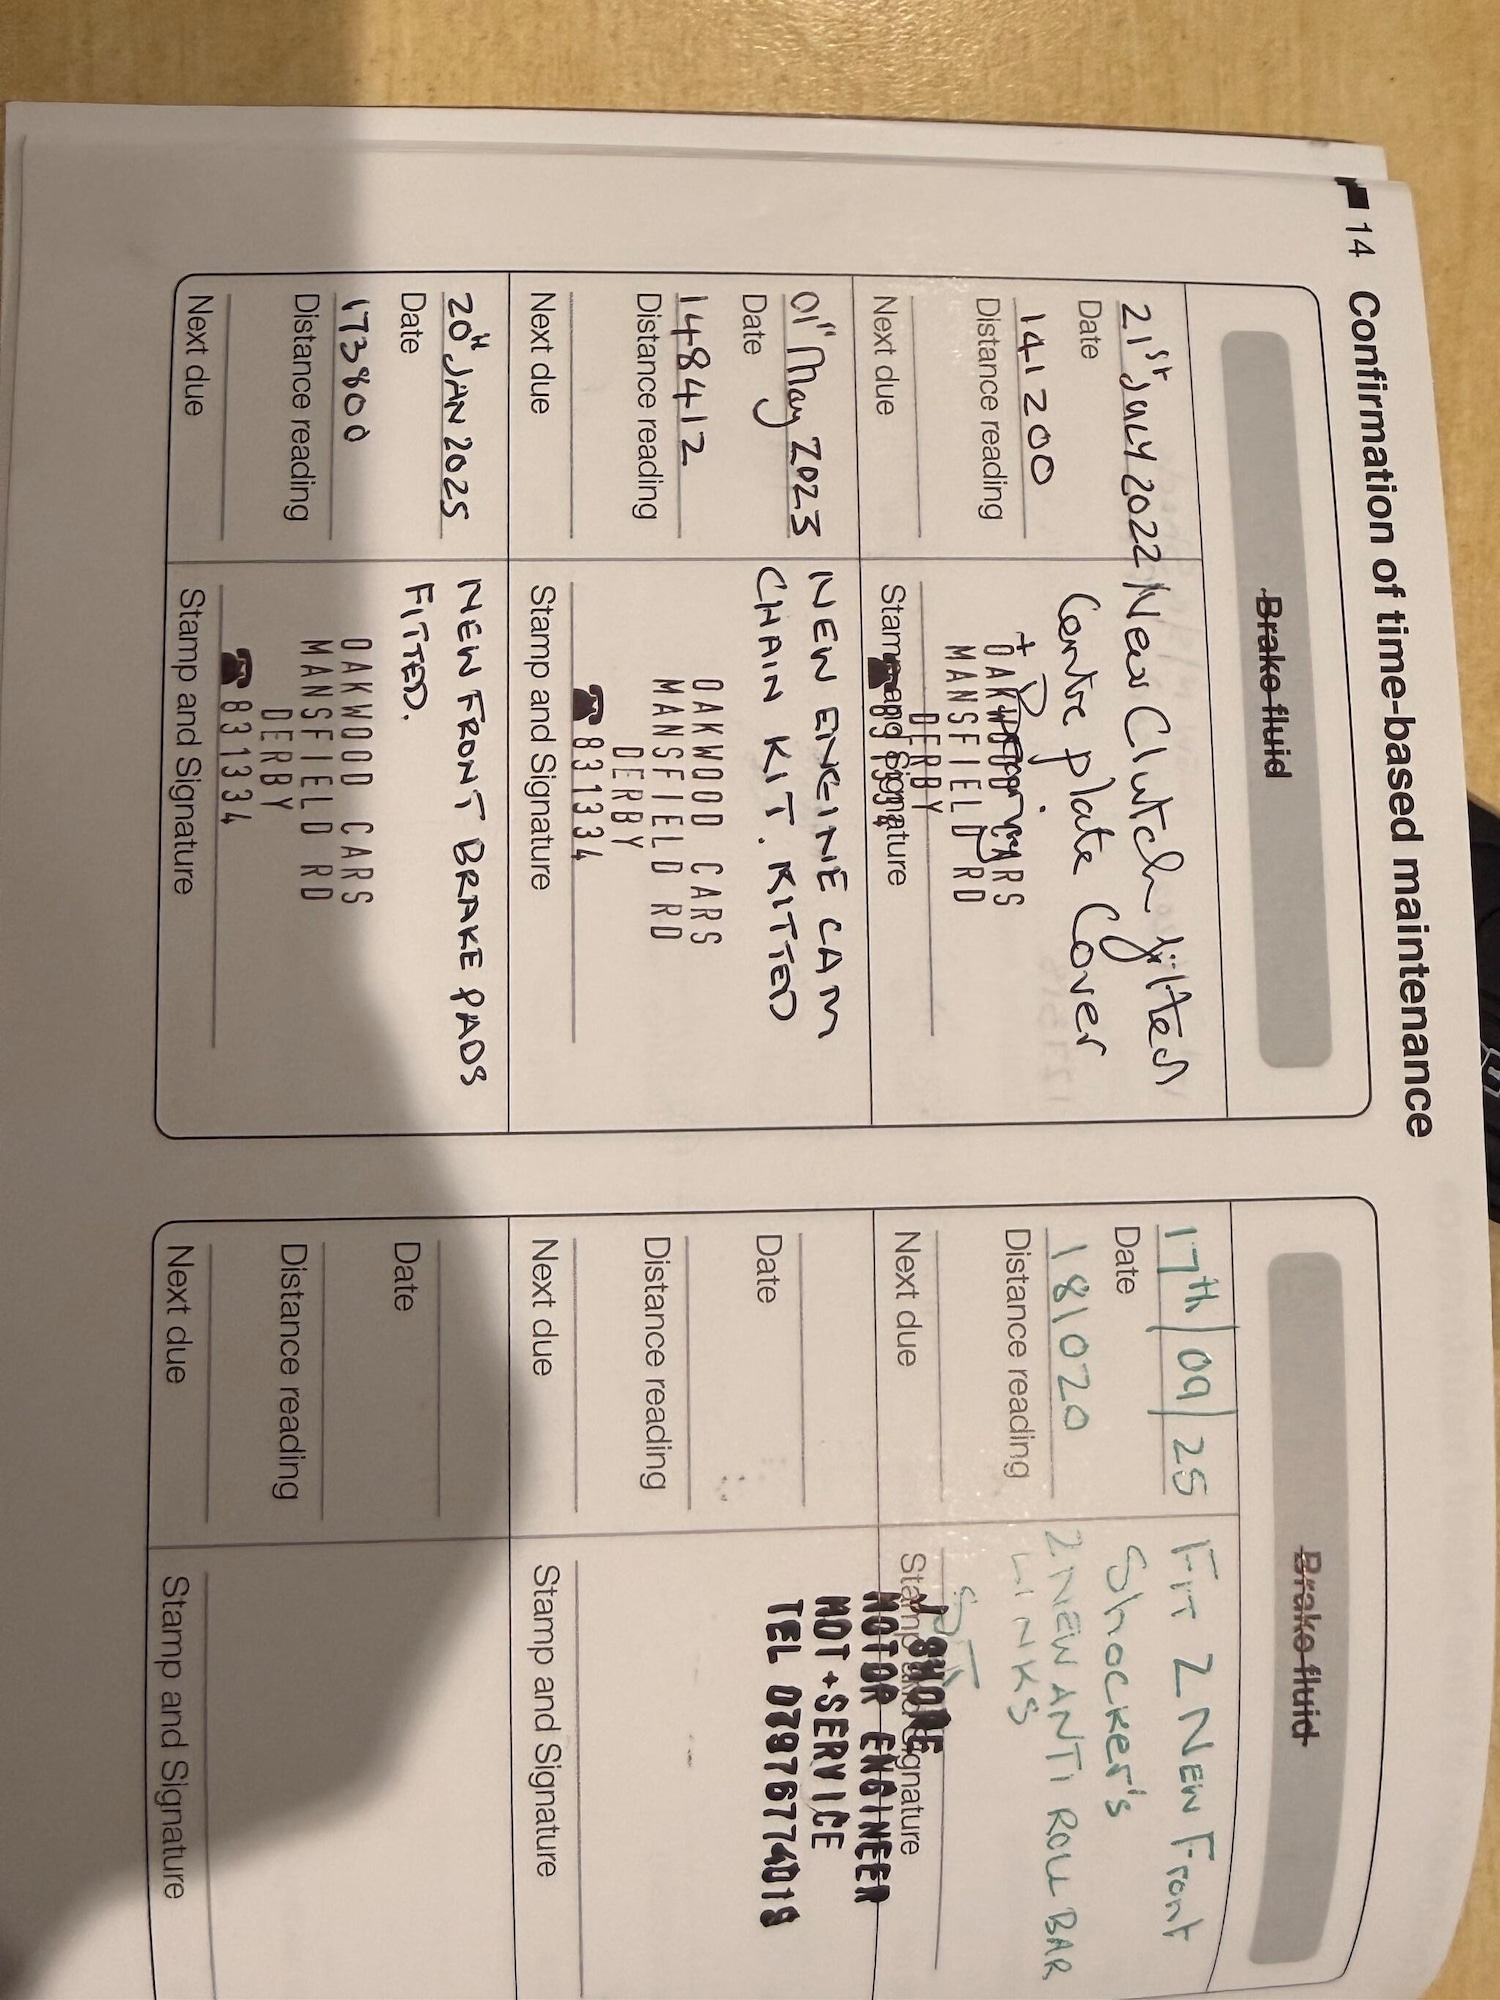 14 Confirmation of time-based maintenance
Brake fluid
21st July 2022
Date
141200
Distance reading
Next due
New Clutch fitted
Centre plate Cover
+
OAKWOOD CARS
MANSFIELD RD
DERBY
831334
Stamp and Signature
01st May 2023
Date
148412
Distance reading
Next due
NEW ENGINE CAM
CHAIN KIT. KITTED
OAKWOOD CARS
MANSFIELD RD
DERBY
831334
Stamp and Signature
20th JAN 2025
Date
173800
Distance reading
Next due
NEW FRONT BRAKE PADS
FITTED.
OAKWOOD CARS
MANSFIELD RD
DERBY
831334
Stamp and Signature
Brake fluid
17th/09/25
Date
181020
Distance reading
Next due
FIT 2 NEW Front
Shocker's
2 NEW ANTI ROLL BAR
LINKS
Stamp and Signature
J SHORE
MOTOR ENGINEER
MOT+SERVICE
TEL 07976774019
Date
Distance reading
Next due
Stamp and Signature
Date
Distance reading
Next due
Stamp and Signature